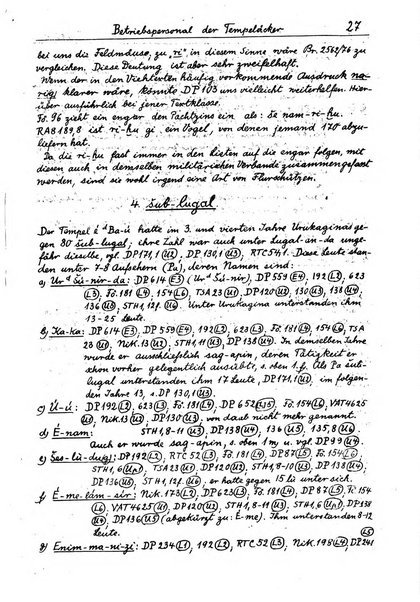 Betriebspersonal der Tempeläcker 27
bei uns die Feldmduso, zu "ri" in diesem Sinne wäre Br. 2563/76 zu
vergleichen. Diese Deutung ist aber sehr zweifelhaft.
Wenn der in den Viehtexten häufig vorkommende Ausdruck na-
rig klarer wäre, könnte DP 103 uns vielleicht weiterhelfen. Hier-
über ausführlich bei jener Textklasse.
Fö. 96 zieht ein engar den Pachtzins ein als: še nam-ri-hu.
RAB 189,8 ist ri-hu gi ein Vogel, von denen jemand 170 abzu-
liefern hat.
Da die ri-hu fast immer in den Listen auf die engar folgen, mit
diesen auch in demselben militärischen Verbande zusammengefasst
werden, sind sie wohl irgend eine Art von Flurschützen.
4. šub-lugal.
Der Tempel é ᵈBa-ú hatte im 3. und vierten Jahre Urukaginas ge-
gen 80 šub-lugal; ihre Zahl war auch unter Lugal-an-da unge-
fähr dieselbe, vgl. DP 171,1 (U2) DP 130,1 (U3), RTC 54,1. Diese Leute stan-
den unter 7-8 Aufsehern (Pa), deren Namen sind:
a) Ur ᵈ Šú-nir-da: DP 614 (E3) (Ur ᵈ Šú-nir), DP 559 (E4), 192 (L2), 623
(L3), Fö. 181 (L4), 154 (L6), TSA 23 (U1) DP 120 (U2), 130 (U3), 138 (U4)
136 (U5), STH 1,12f. (U6). Unter Urukagina unterstehen ihm
13-25 Leute.
b) Ka-ka: DP 614 (E3), DP 559 (E4), 192 (L2), 623 (L3), Fö. 181 (L4), 154 (L6), TSA
23 (U1), Nik. 13 (U2), DP 130 (U3) STH 1,11 (U3), DP 138 (U4) In demselben Jahre
wurde er ausschließlich sag-apin, deren Tätigkeit er
schon vorher gelegentlich ausübt, s. oben 1.f. Als Pa šub-
lugal unterstanden ihm 17 Leute, DP 171,1 (U2), im folgen-
den Jahre 13, s. DP 130,1 (U3).
c) Ú-ú: DP 192 (L2), 623 (L3), Fö. 181 (L4), DP 652 (L5), Fö. 154 (L6), VAT 4625
(U1) Nik. 13 (U2) DP 130 (U3). von da ab nicht mehr genannt.
d) É-nam: STH 1,8-11 (U3) DP 138 (U4), 136 (U5), 135,8 (U6).
Auch er wurde sag-apin, s. oben 1 m u. vgl. DP 99 (U4)
e) Šeš-lú-dug: DP 192 (L2), RTC 52 (L3), Fö. 181 (L4), DP 87 (L5), Fö. 154 (L6)
STH 1,6 (Up1), TSA 23 (U1) DP 120 (U2), STH 1,8-10 (U3), DP 138 (U4)
DP 136 (U5), STH 1,12f. (U6), er hatte gegen 15 Li unter sich.
f) É-me-lám-sír: Nik. 173 (L2), DP 623 (L3), Fö. 181 (L4), DP 87 (L5), Fö. 154
(L6), VAT 4625 (U1), DP 120 (U2), STH 1,8-11 (U3), STH 1,6 (Up1), DP 138
(U4), DP 136 (U5) (abgekürzt zu: É-me). Ihm unterstanden 8-12
Leute.
g) Enim-ma-ni-zi: DP 234 (L1), 192 (L2), RTC 52 (L3), Nik. 198 (L4), DP 241 (L5)